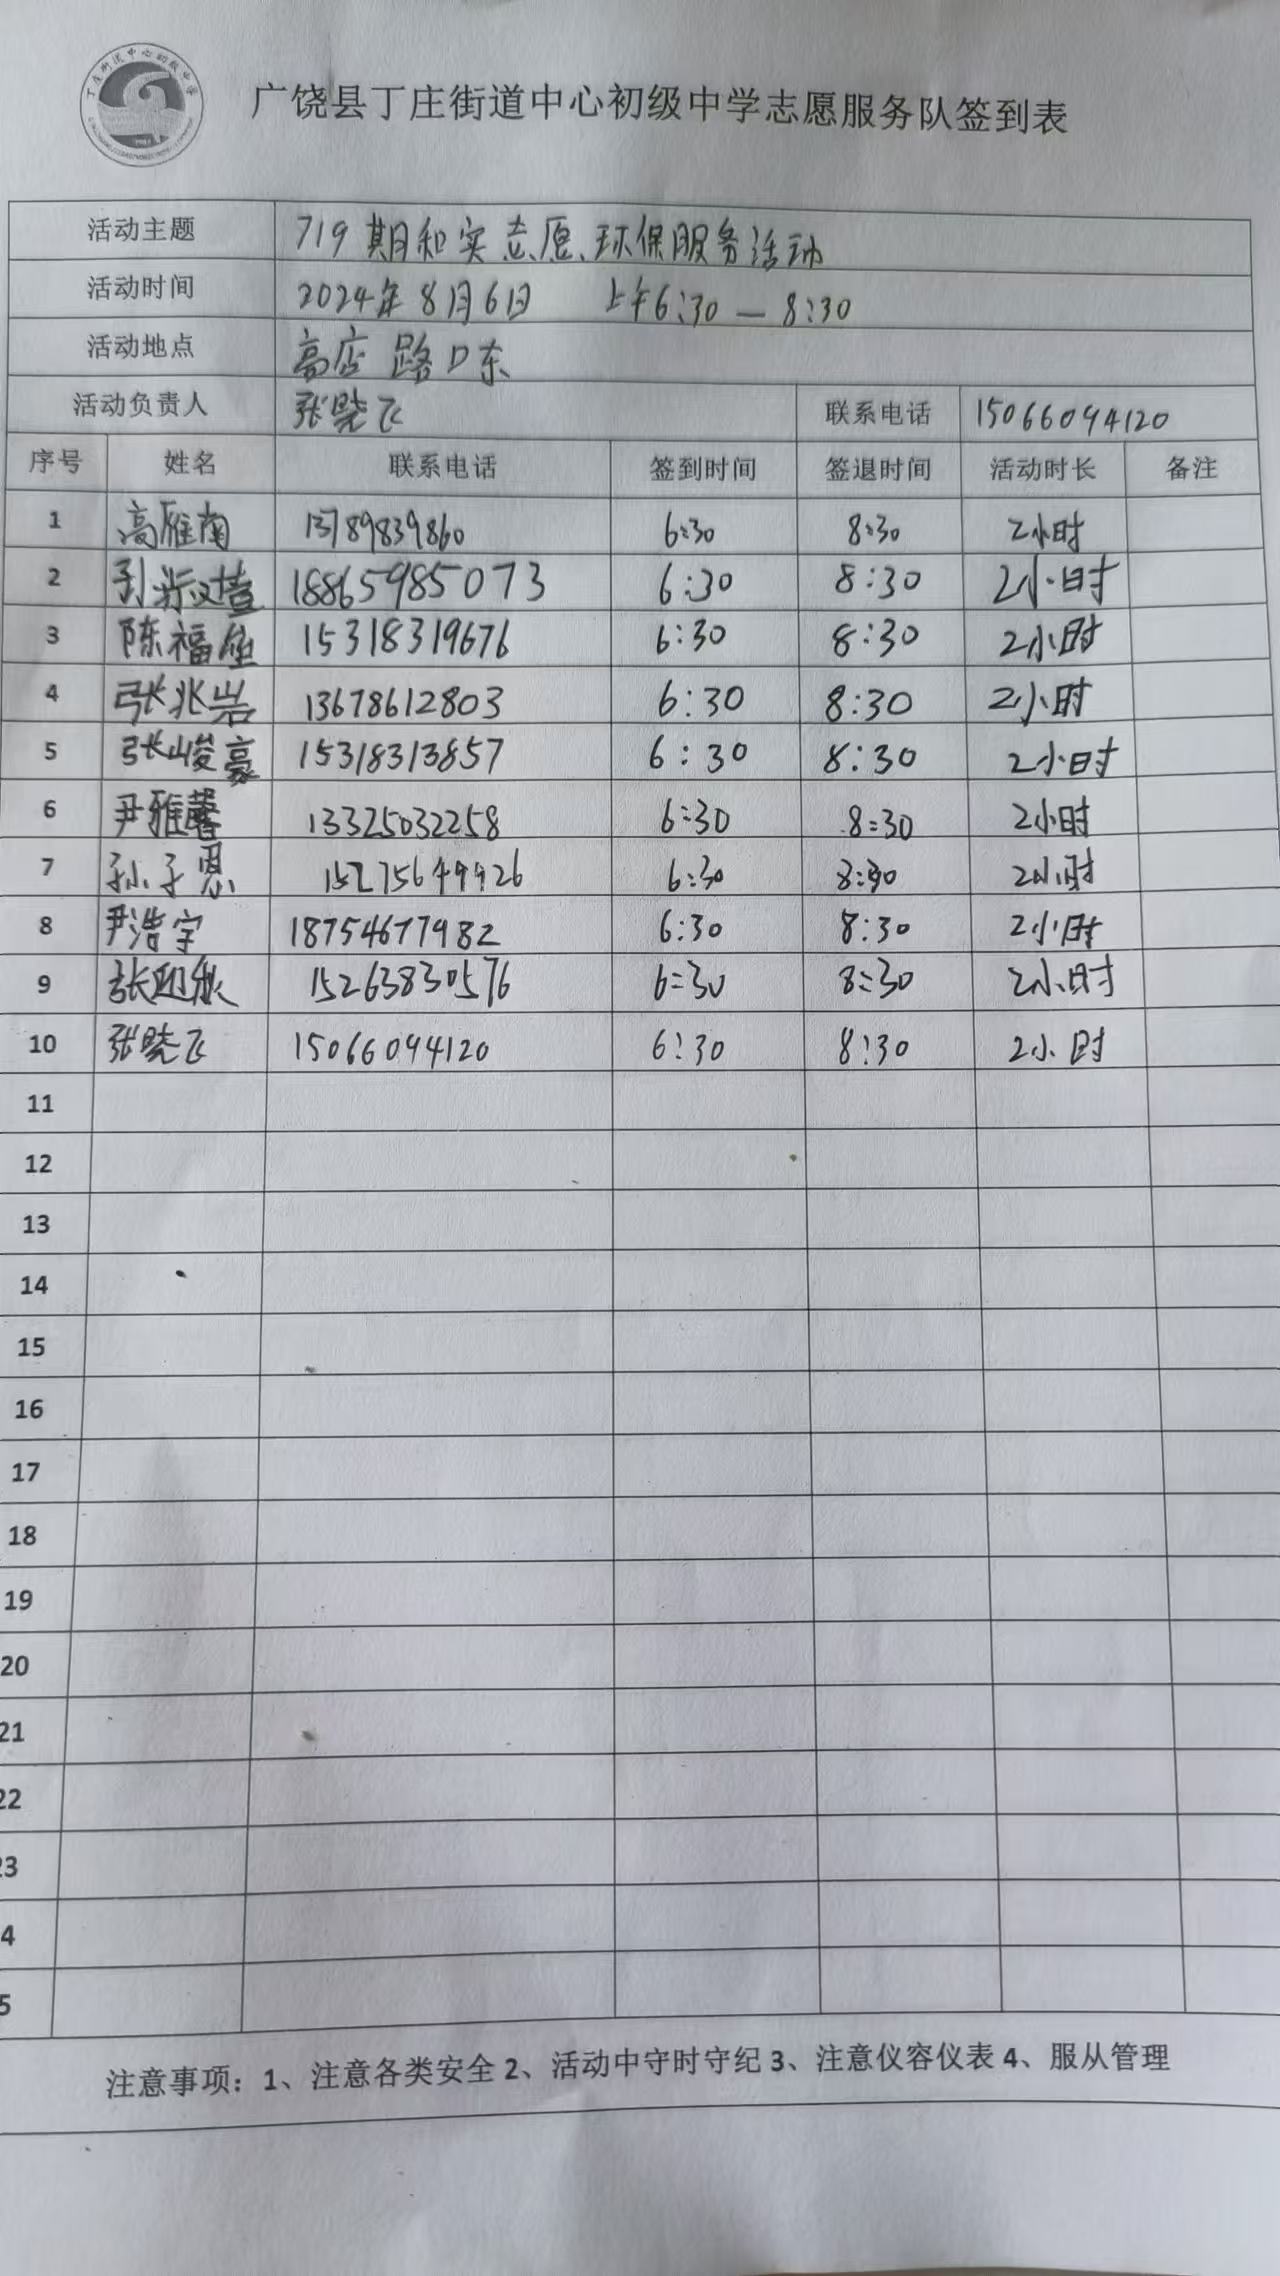 丁庄街道中心初级中学
广饶县丁庄街道中心初级中学志愿服务队签到表
活动主题 719期和实志愿、环保服务活动
活动时间 2024年8月6日 上午6:30—8:30
活动地点 高店路口东
活动负责人 张晓飞 联系电话 15066094120
序号 姓名 联系电话 签到时间 签退时间 活动时长 备注
1 高雁南 13789839860 6:30 8:30 2小时
2 18865985073 6:30 8:30 2小时
3 15318319676 6:30 8:30 2小时
4 张兆岩 13678612803 6:30 8:30 2小时
5 张峻豪 15318313857 6:30 8:30 2小时
6 尹雅馨 13325032258 6:30 8:30 2小时
7 孙子恩 15275649926 6:30 8:30 2小时
8 尹浩宇 18754677982 6:30 8:30 2小时
9 15263830576 6:30 8:30 2小时
10 张晓飞 15066094120 6:30 8:30 2小时
11
12
13
14
15
16
17
18
19
20
21
22
23
4
5
注意事项：1、注意各类安全 2、活动中守时守纪 3、注意仪容仪表 4、服从管理